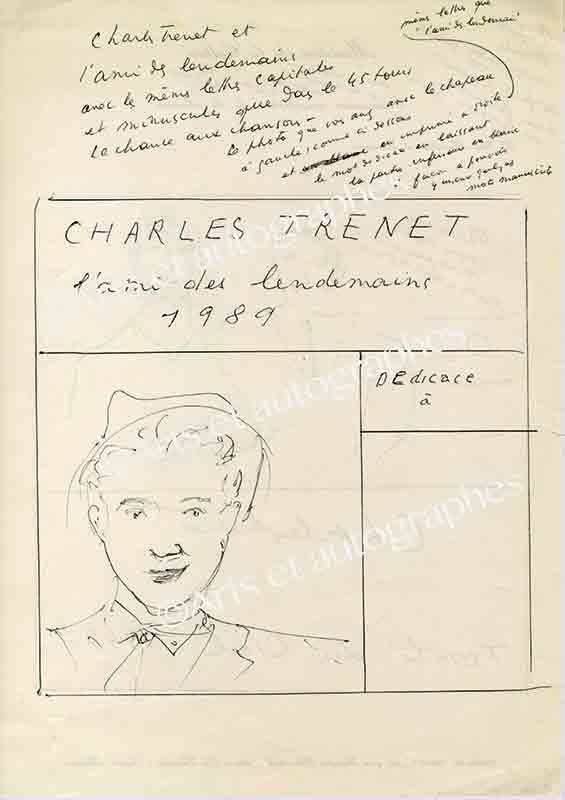 même lettres que
"l'ami des lendemains"
Charles Trenet et
l'ami des lendemains
avec les mêmes lettres capitales
et minuscules que dans le 45 tours
La chance aux chansons -
la photo que vous avez avec le chapeau
à gauche comme ci dessous
et en imprimé à droite
le mot dédicace en laissant
la partie inférieure en blanc
façon à pouvoir
y mettre quelques
mots manuscrits
CHARLES TRENET
l'ami des lendemains
1989
DEdicace
à
©Arts et autographes
©Arts et autographes
©Arts et autographes